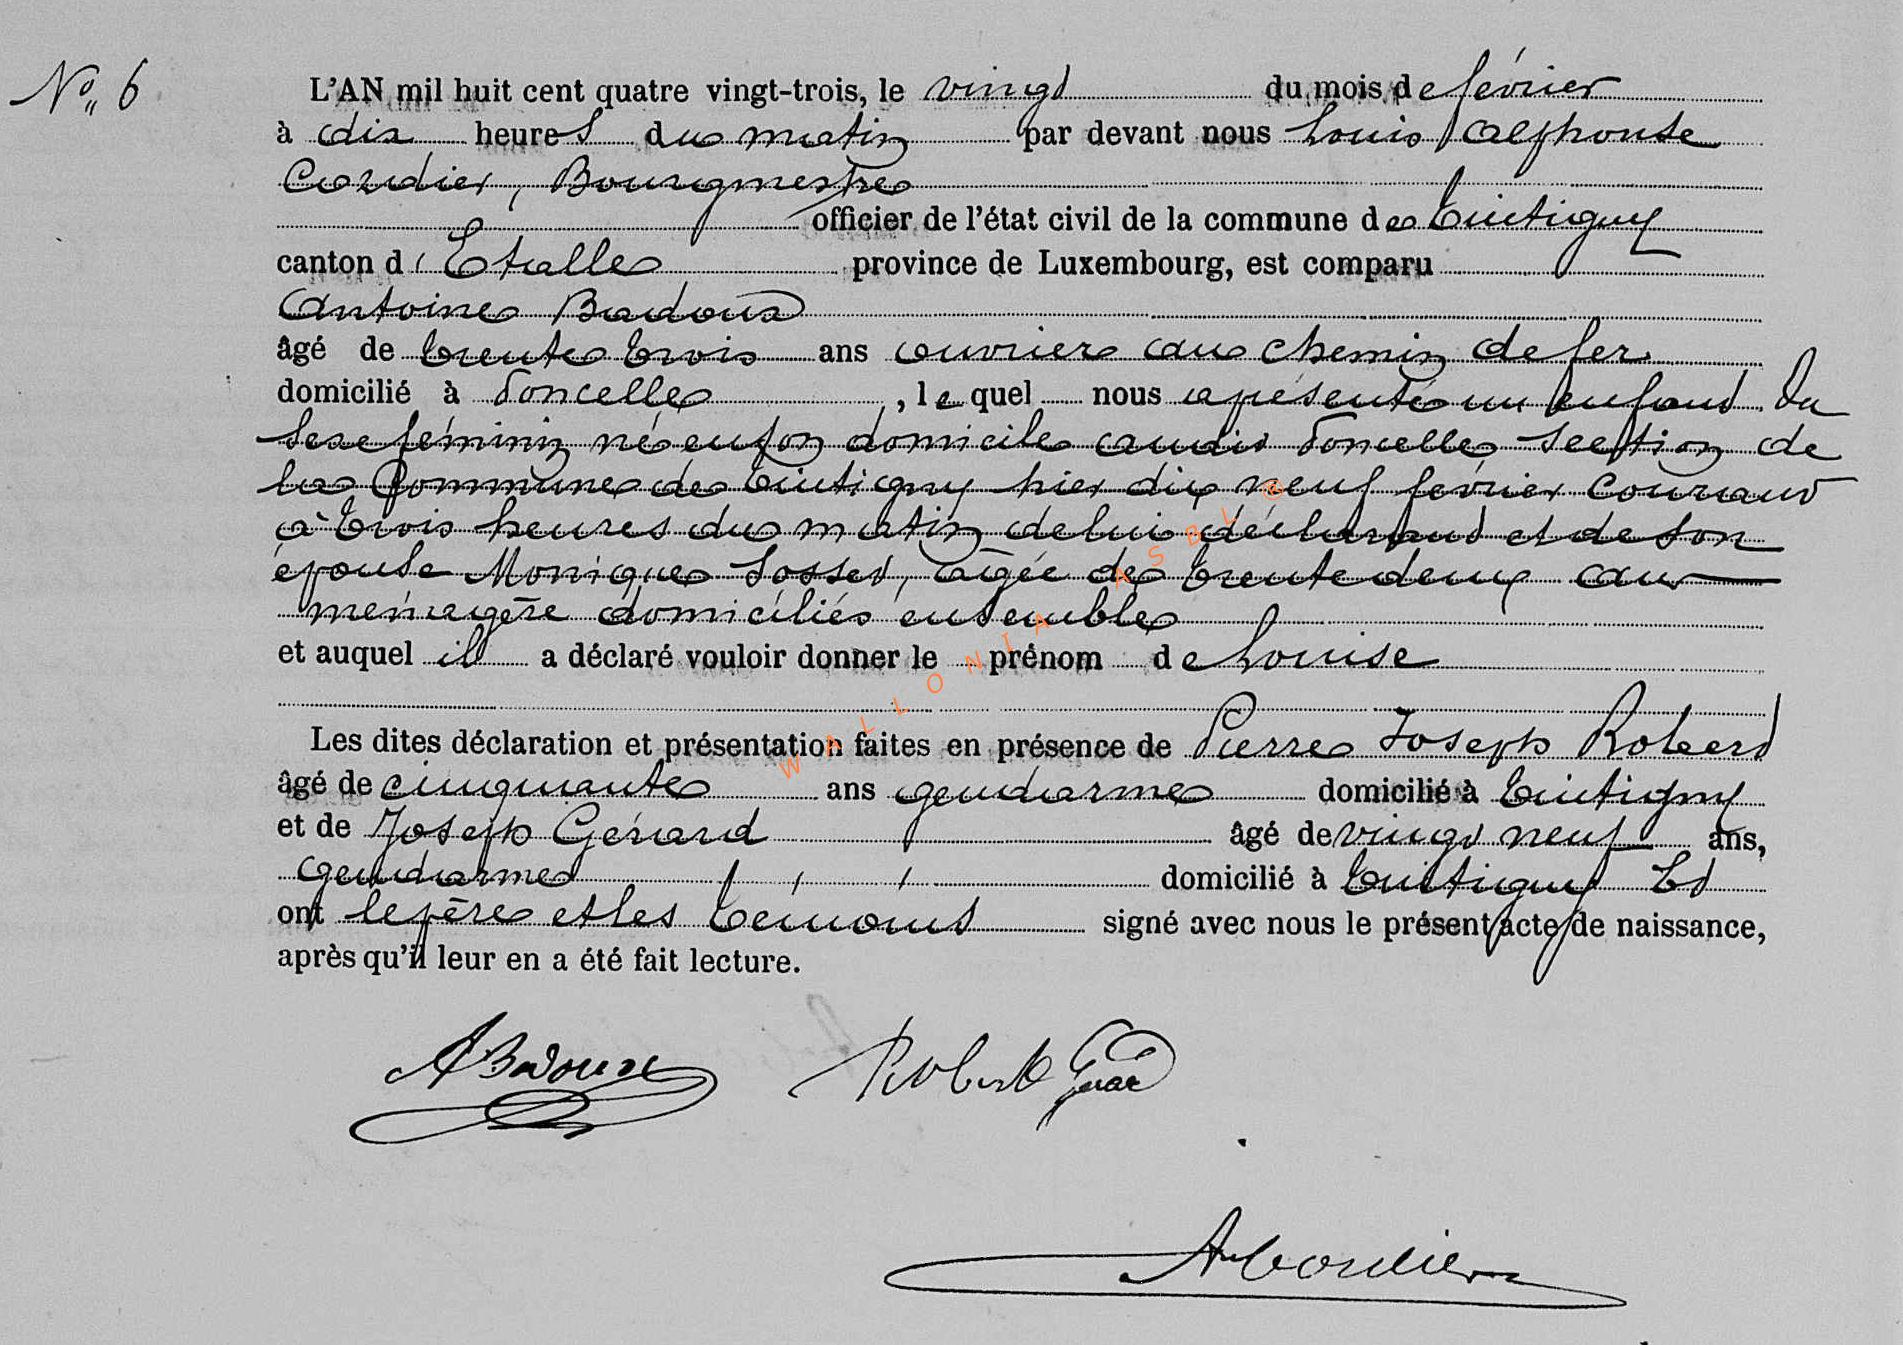 N° 6
L'AN mil huit cent quatre vingt-trois, le vingt du mois de février
à dix heures du matin par devant nous Louis Alphonse
Cordier, Bourgmestre
officier de l'état civil de la commune de Tintigny
canton d'Etalle province de Luxembourg, est comparu
Antoine Badoux
âgé de trente trois ans ouvrier au chemin de fer
domicilié à Poncelle, lequel nous a présenté un enfant du
sexe féminin né en son domicile audit Poncelle section de
la Commune de Tintigny hier dix neuf février courant
à trois heures du matin de lui déclarant et de son
épouse Monique Sosset, âgée de trente deux ans
ménagère domiciliés ensemble
et auquel il a déclaré vouloir donner le prénom de Louise
Les dites déclaration et présentation faites en présence de Pierre Joseph Robert
âgé de cinquante ans gendarme domicilié à Tintigny
et de Joseph Gérard âgé de vingt neuf ans,
gendarme domicilié à Tintigny Et
ont le père et les témoins signé avec nous le présent acte de naissance,
après qu'il leur en a été fait lecture.
ABadoux Robert Gérard
ACordier
WALLONIA ASBL ®